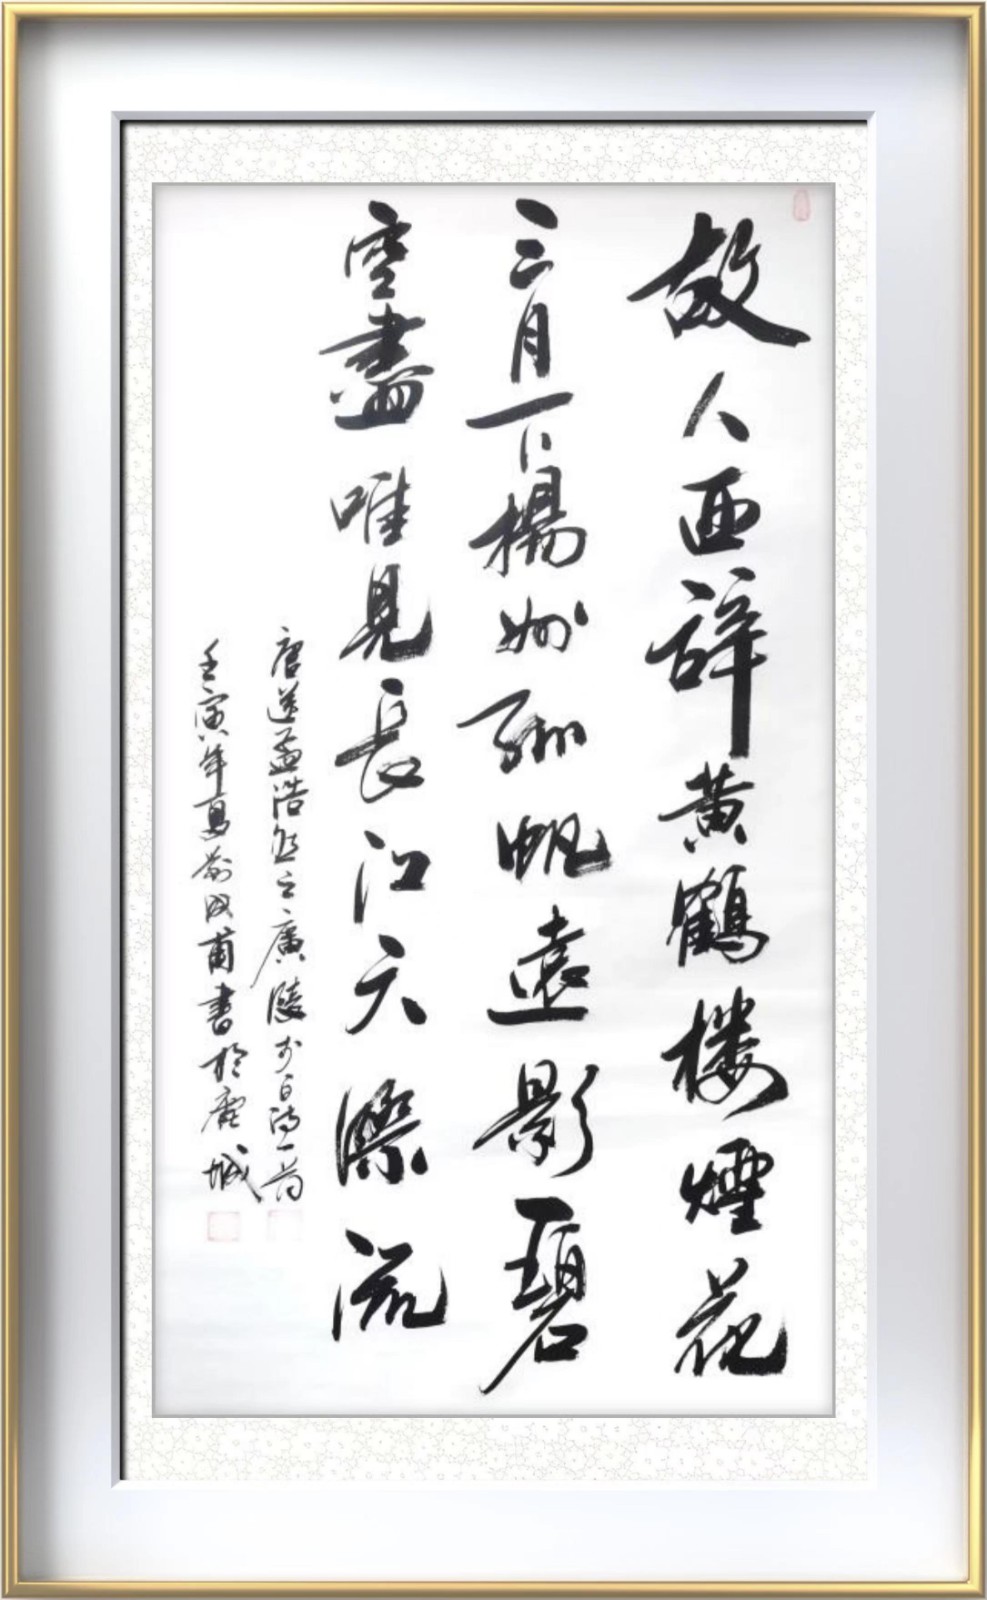 故人西辞黄鶴楼煙花
三月下楊州孤帆遠影碧
空盡唯見長江天際流
唐送孟浩然之廣陵李白詩一首
壬寅年夏甫書於鹿城